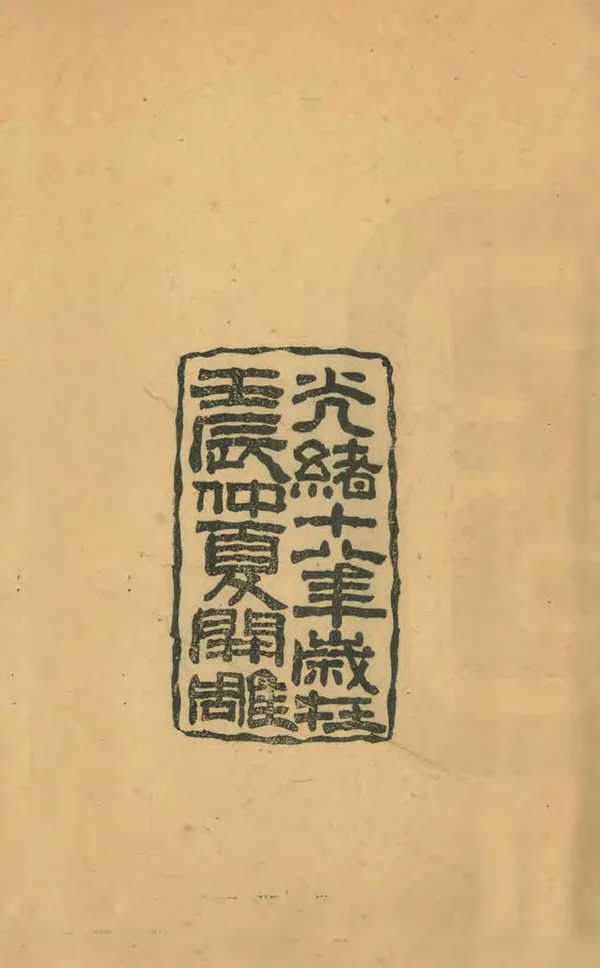 光緒十八年歲在
壬辰仲夏開雕